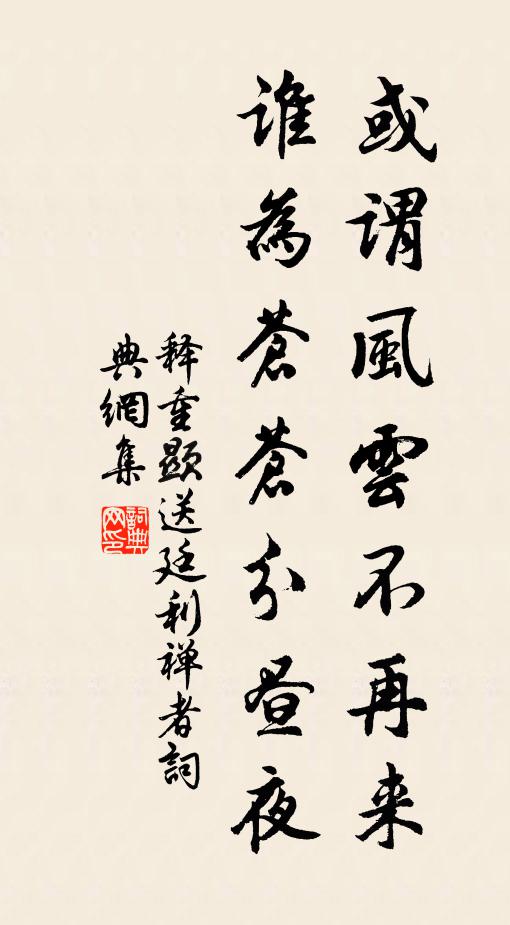 或谓風雲不再来
谁為蒼蒼分昼夜
释重顯送廷利禅者詞
典網集
詞典
网印